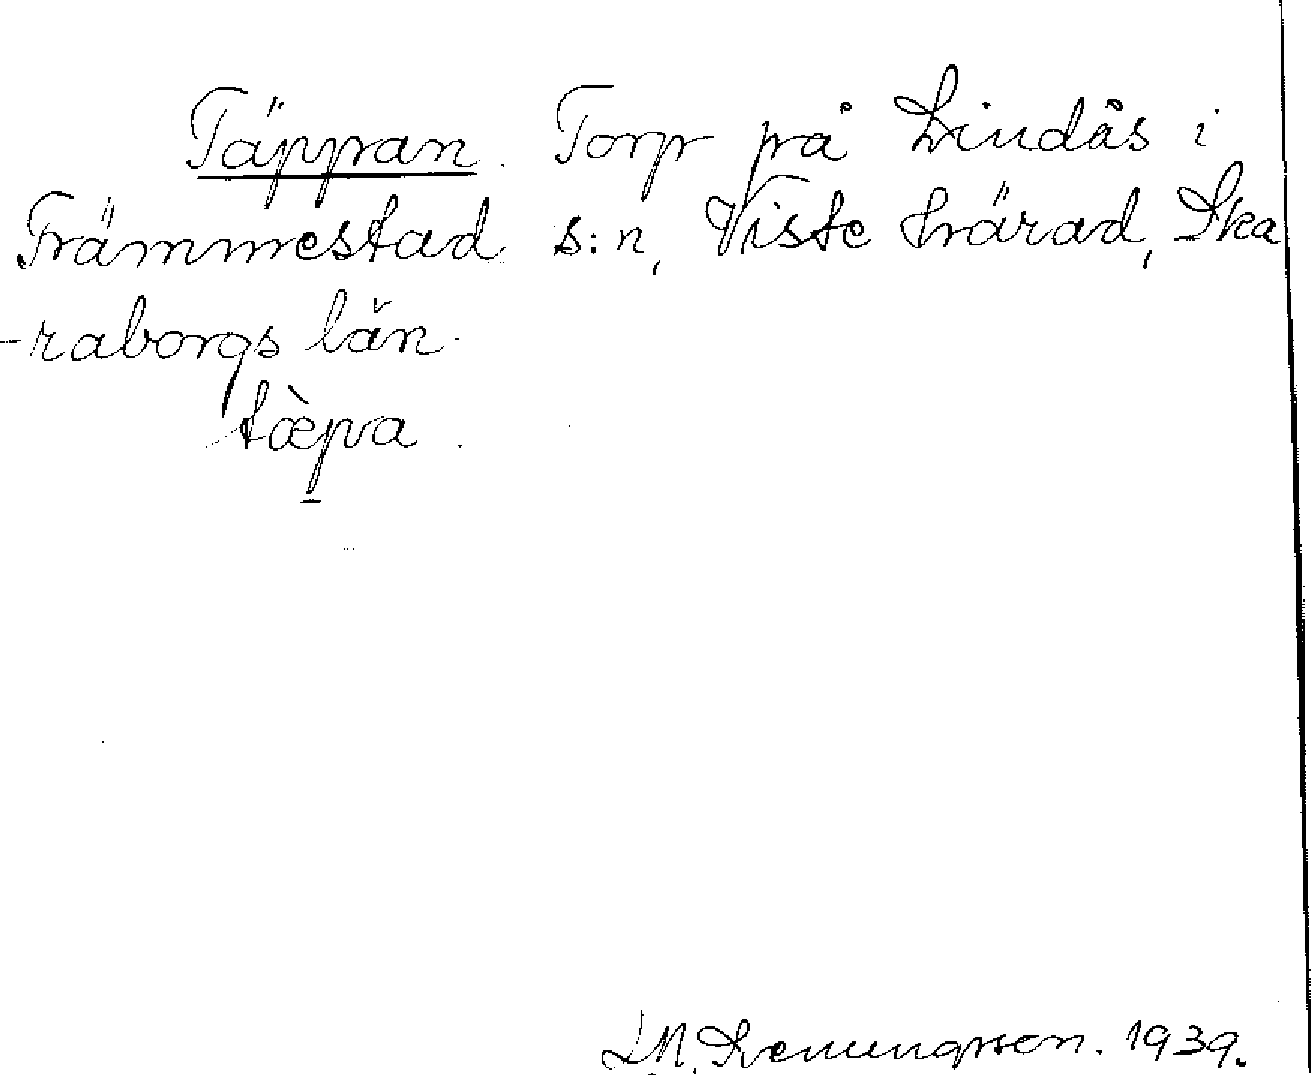 Täppan. Torp på Lindås i
Främmestad s:n, Viste härad, Ska
-raborgs län.
tæ̀p̠a.
1939.